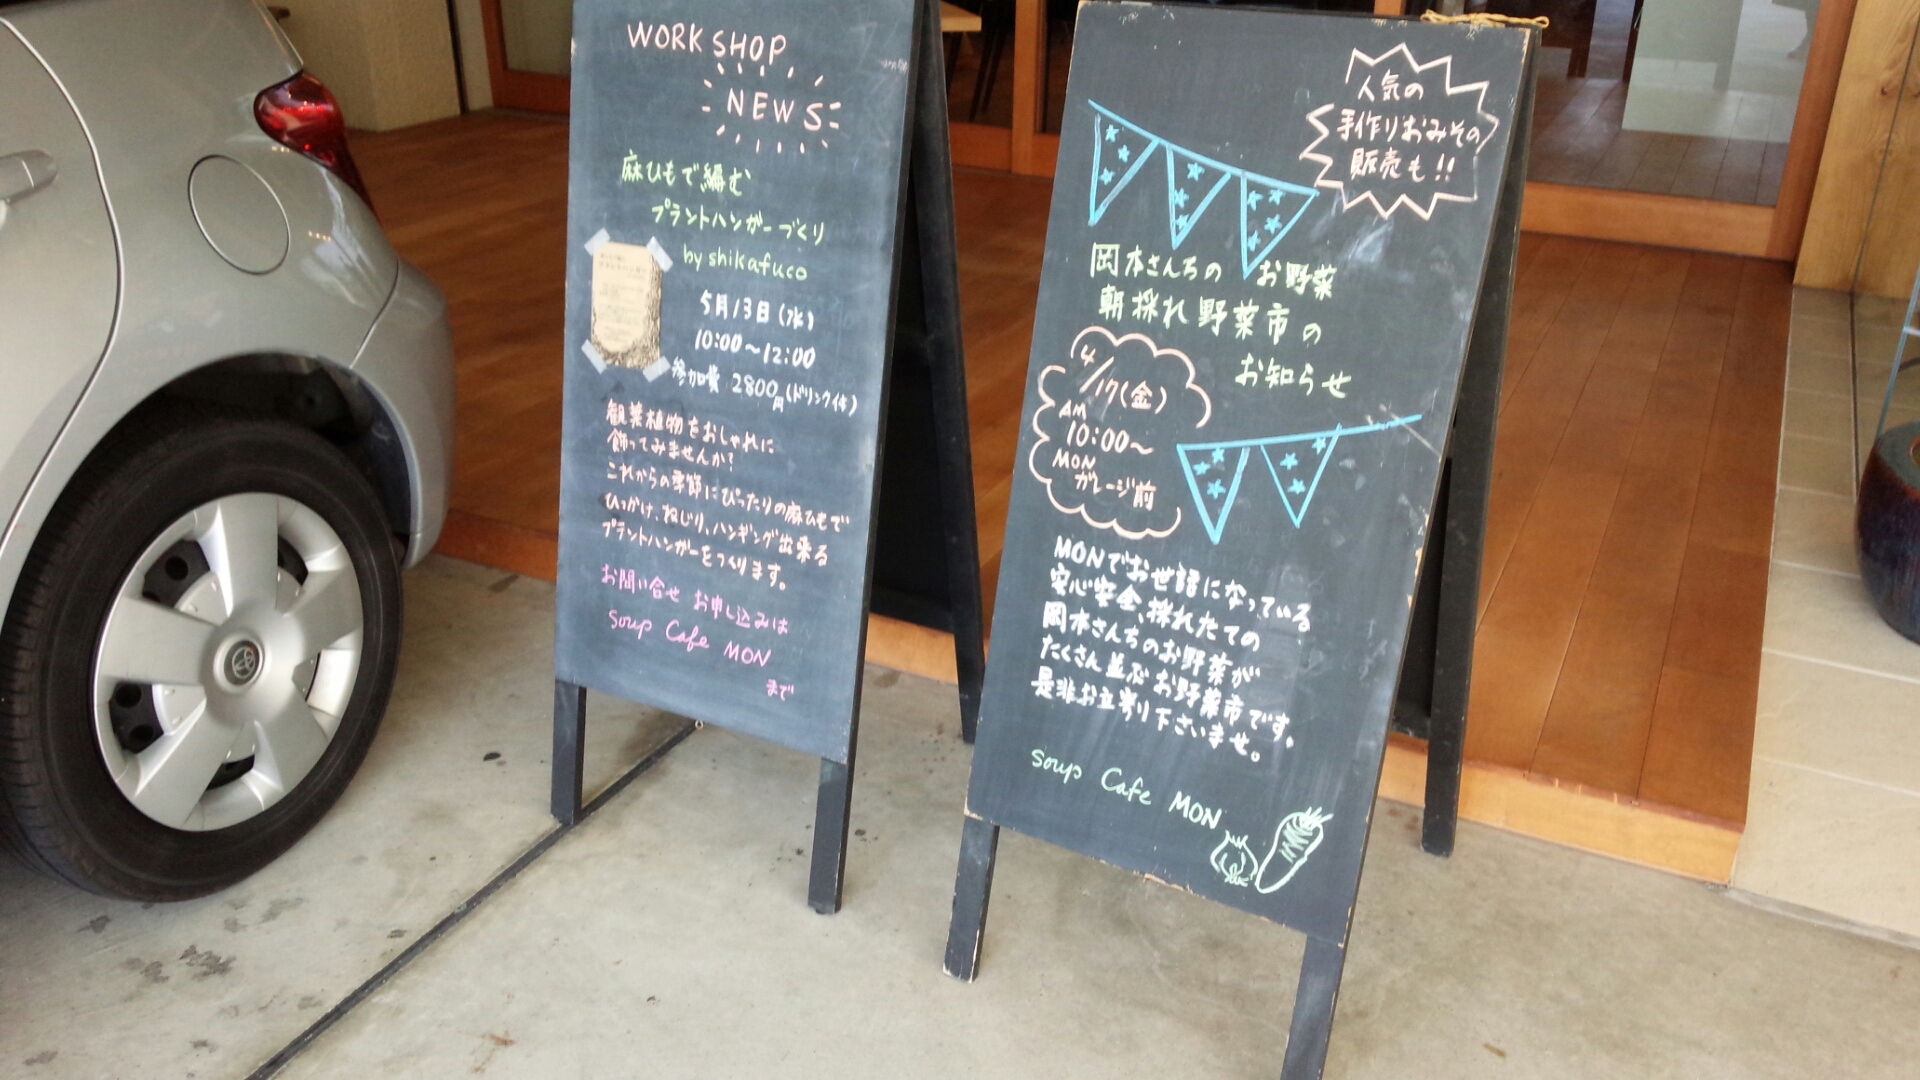 WORK SHOP
NEWS
麻ひもで編む
プラントハンガーづくり
by shikafuco
5月13日(水)
10:00〜12:00
参加費 2800円(ドリンク付)
観葉植物をおしゃれに
飾ってみませんか?
これからの季節にぴったりの麻ひもで
ひっかけ、ねじり、ハンギング出来る
プラントハンガーをつくります。
お問い合せ お申し込みは
Soup Cafe MON
まで
人気の
手作りおみその
販売も!!
岡本さんちの お野菜
朝採れ野菜市の
お知らせ
4/17(金)
AM
10:00〜
MON
ガレージ前
MONでお世話になっている
安心安全、採れたての
岡本さんちのお野菜が
たくさん並ぶお野菜市です。
是非お立寄り下さいませ。
Soup Cafe MON